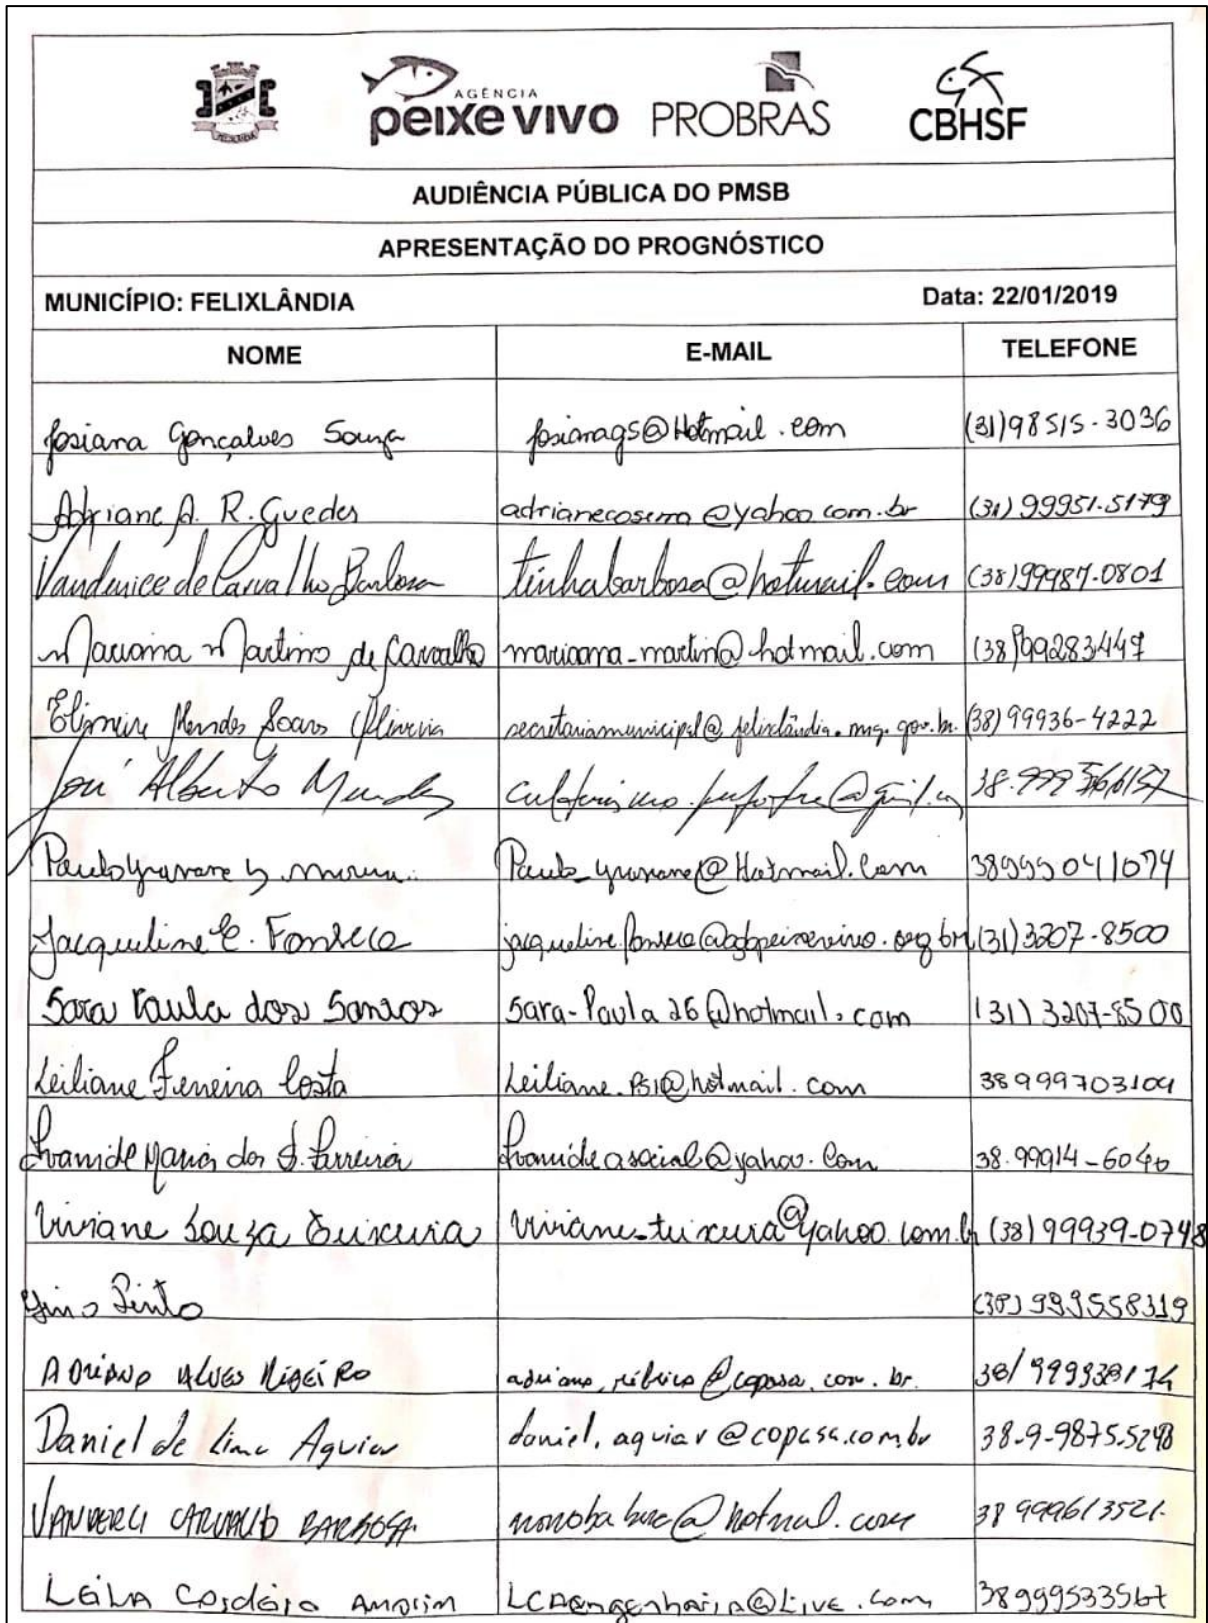 AGÊNCIA
peixe vivo PROBRAS CBHSF
AUDIÊNCIA PÚBLICA DO PMSB
APRESENTAÇÃO DO PROGNÓSTICO
MUNICÍPIO: FELIXLÂNDIA Data: 22/01/2019
NOME E-MAIL TELEFONE
Josiana Gonçalves Souza josianags@Hotmail.com (31)98515-3036
Adriane A. R. Guedes adrianecosema@yahoo.com.br (31) 99951.5179
Vandenice de Carvalho Barbosa tinhabarbosa@hotmail.com (38)99987-0801
Mariana Martins de Carvalho (38)99283447
Mendes Soares Oliveira secretariamunicipal@felixlândia.mg.gov.br (38)99936-4222
José Alberto Mendes
Paulo 38999041074
Jacqueline E. Fonseca jaqueline.fonseca@agbpeixevivo.org.br (31)3207-8500
Sara Paula dos Santos Sara-Paula26@hotmail.com (31) 3207-8500
Leiliane Ferreira Costa Leiliane.PSI@hotmail.com 38999703104
Ivanide Maria dos S. Ferreira Ivanideasocial@yahoo.com 38.99914-6040
Viviane Souza Teixeira Viviane-teixeira@yahoo.com.br (38)99939-0748
Pinto (38) 999558319
ADRIANO ALVES RIBEIRO adriano.ribeiro@copasa.com.br. 38/999938174
Daniel de Lima Aguiar daniel.aguiar@copasa.com.br 38-9-9875-5248
VANDERCI CARVALHO BARBOSA 38 999613521.
LEILA Cordeiro Amorim LCAengenharia@Live.com 38999533567